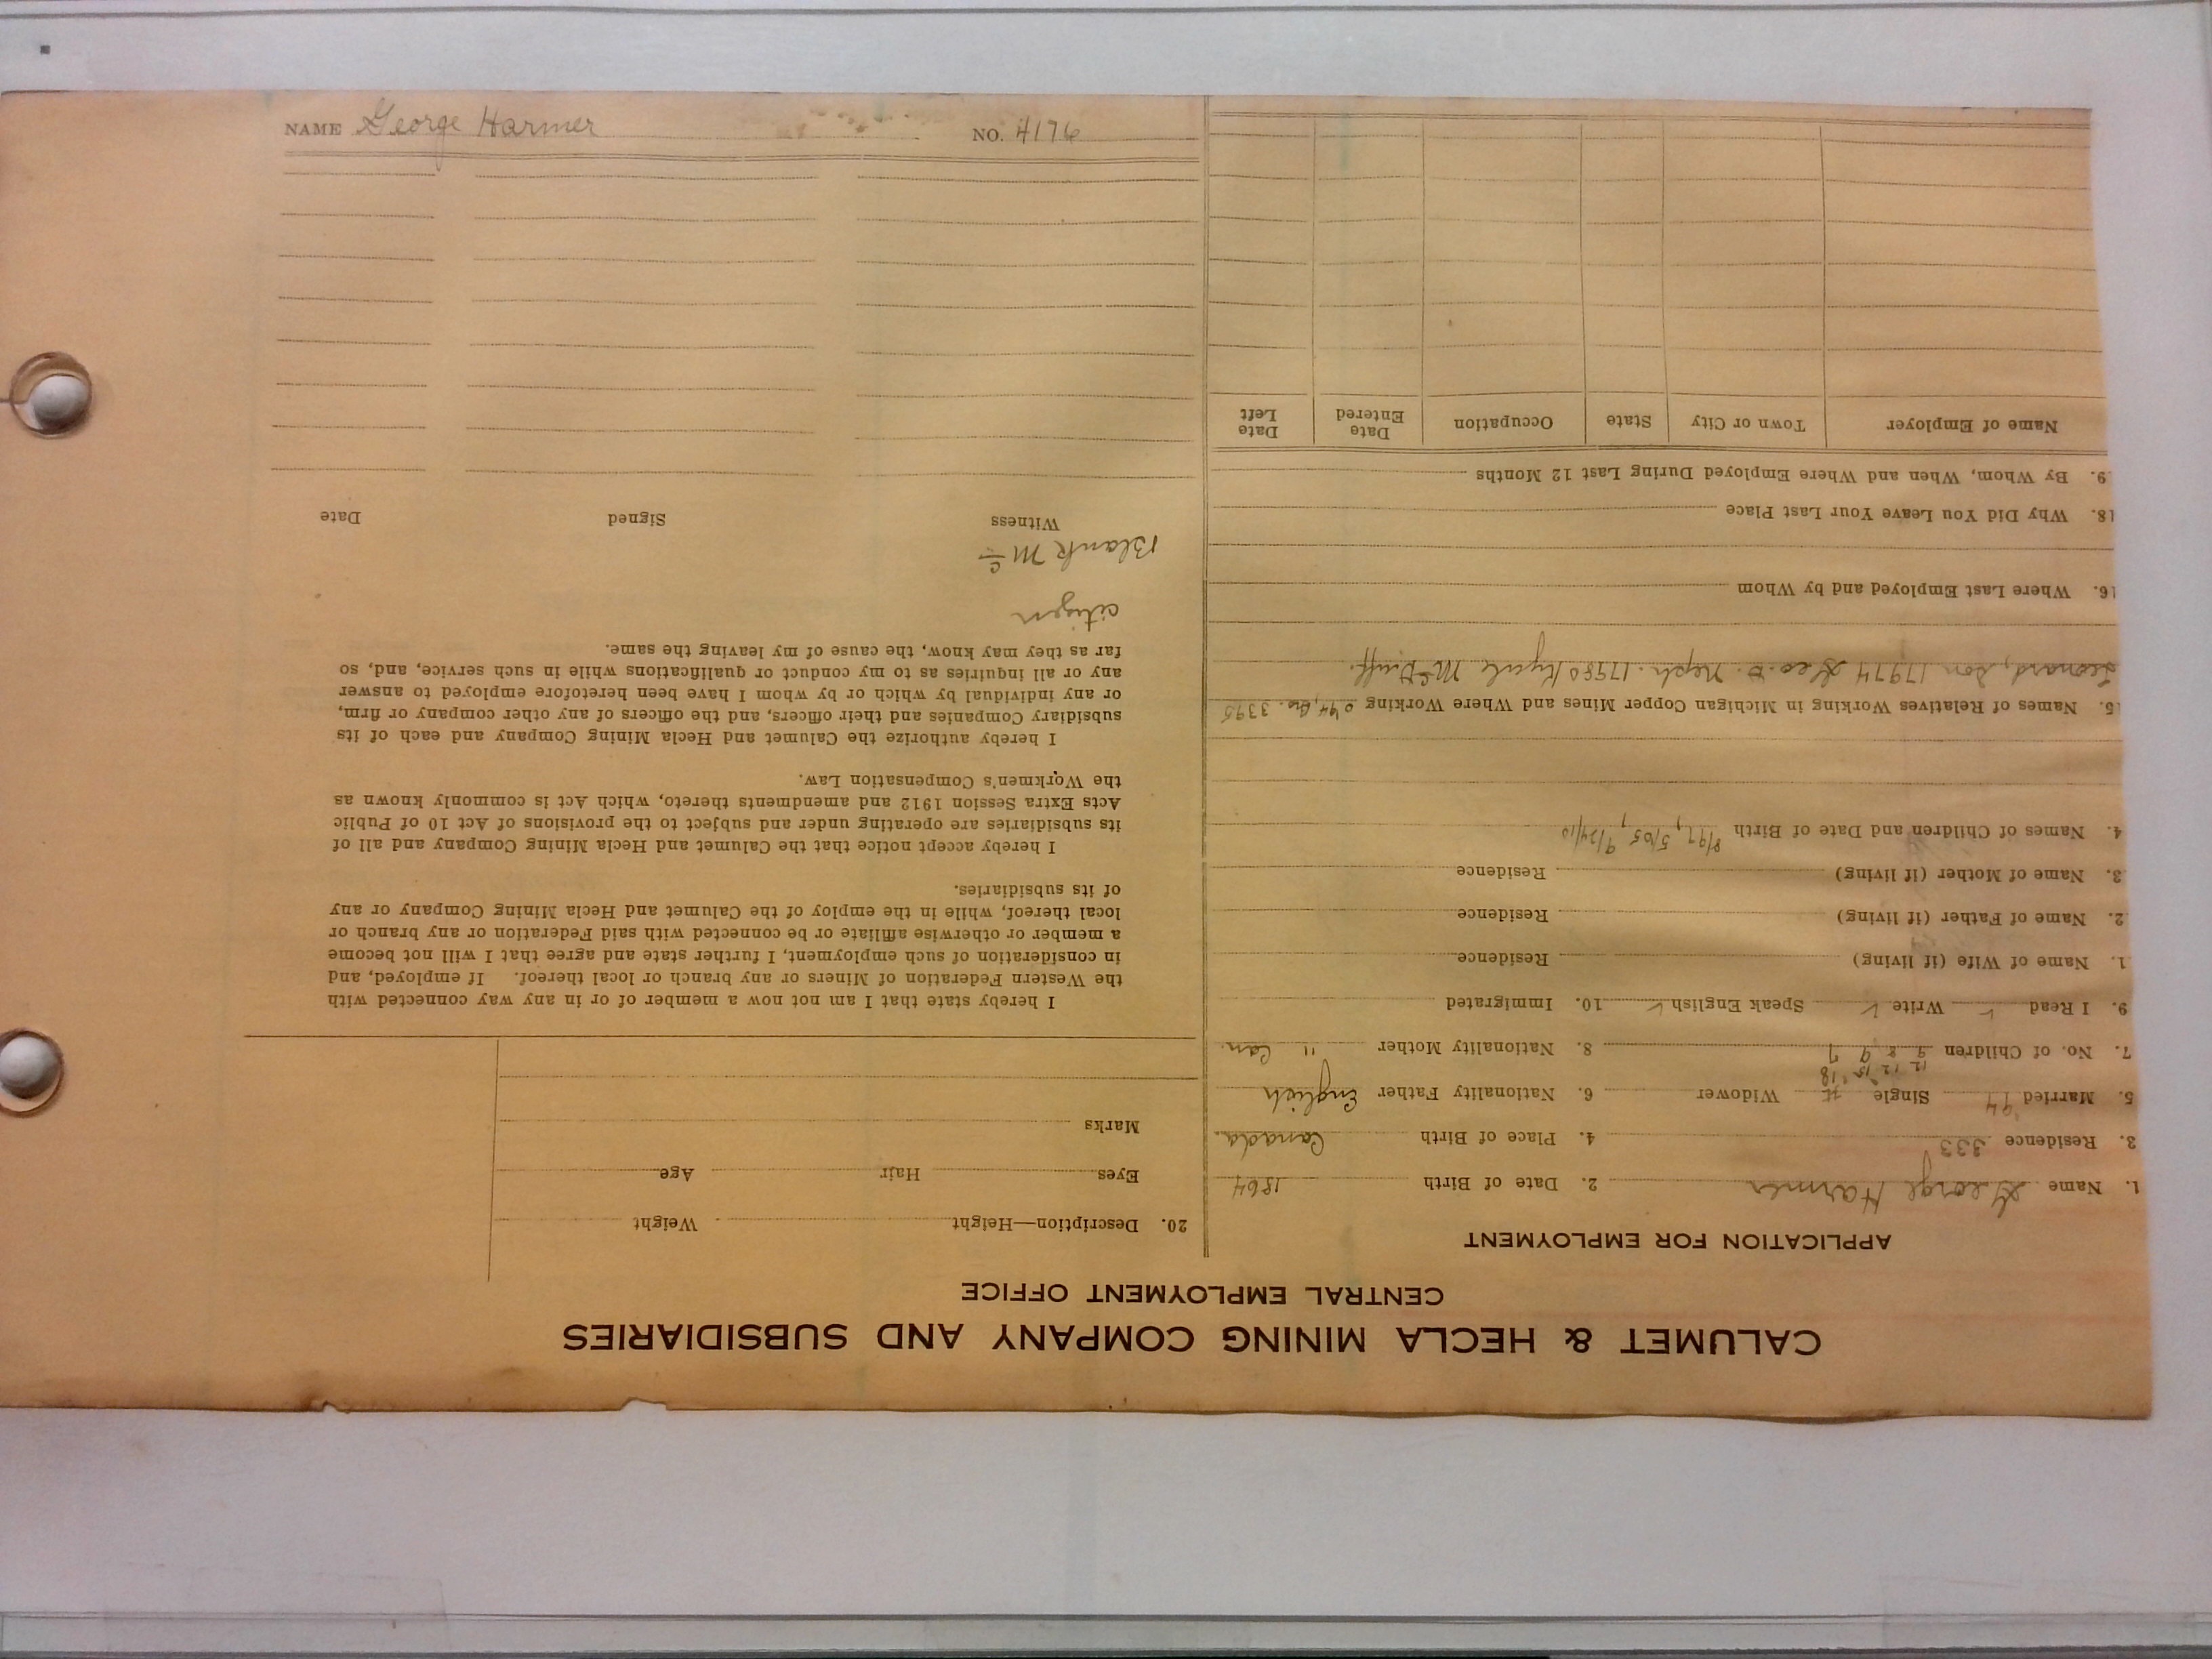 CALUMET & HECLA MINING COMPANY AND SUBSIDIARIES
CENTRAL EMPLOYMENT OFFICE
APPLICATION FOR EMPLOYMENT
1. Name George Harmer 2. Date of Birth 1864
3. Residence 333 4. Place of Birth Canada.
5. Married '94 Single Widower 6. Nationality Father English
12 12 15 '18
7. No. of Children 9 8 9 7 8. Nationality Mother " Can.
9. I Read ✓ Write ✓ Speak English ✓ 10. Immigrated
1. Name of Wife (if living) Residence
2. Name of Father (if living) Residence
3. Name of Mother (if living) Residence
4. Names of Children and Date of Birth 8/97, 5/05, 9/24/10
5. Names of Relatives Working in Michigan Copper Mines and Where Working 3395
Leonard, Son 17974 Geo. D. Neph. 17980
16. Where Last Employed and by Whom
18. Why Did You Leave Your Last Place
9. By Whom, When and Where Employed During Last 12 Months
Name of Employer Town or City State Occupation Date Entered Date Left
20. Description—Height Weight
Eyes Hair Age
Marks
I hereby state that I am not now a member of or in any way connected with
the Western Federation of Miners or any branch or local thereof. If employed, and
in consideration of such employment, I further state and agree that I will not become
a member or otherwise affiliate or be connected with said Federation or any branch or
local thereof, while in the employ of the Calumet and Hecla Mining Company or any
of its subsidiaries.
I hereby accept notice that the Calumet and Hecla Mining Company and all of
its subsidiaries are operating under and subject to the provisions of Act 10 of Public
Acts Extra Session 1912 and amendments thereto, which Act is commonly known as
the Workmen's Compensation Law.
I hereby authorize the Calumet and Hecla Mining Company and each of its
subsidiary Companies and their officers, and the officers of any other company or firm,
or any individual by which or by whom I have been heretofore employed to answer
any or all inquiries as to my conduct or qualifications while in such service, and, so
far as they may know, the cause of my leaving the same.
citizen
Blank Mc
Witness Signed Date
NAME George Harmer NO. 4176